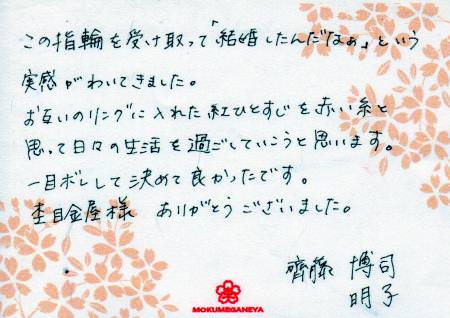 この指輪を受け取って「結婚したんだなぁ」という
実感がわいてきました。
お互いのリングに入れた紅ひとすじを赤い糸と
思って日々の生活を過ごしていこうと思います。
一目ボレして決めて良かったです。
杢目金屋様 ありがとうございました。
齊藤 博司
明子
MOKUMEGANEYA